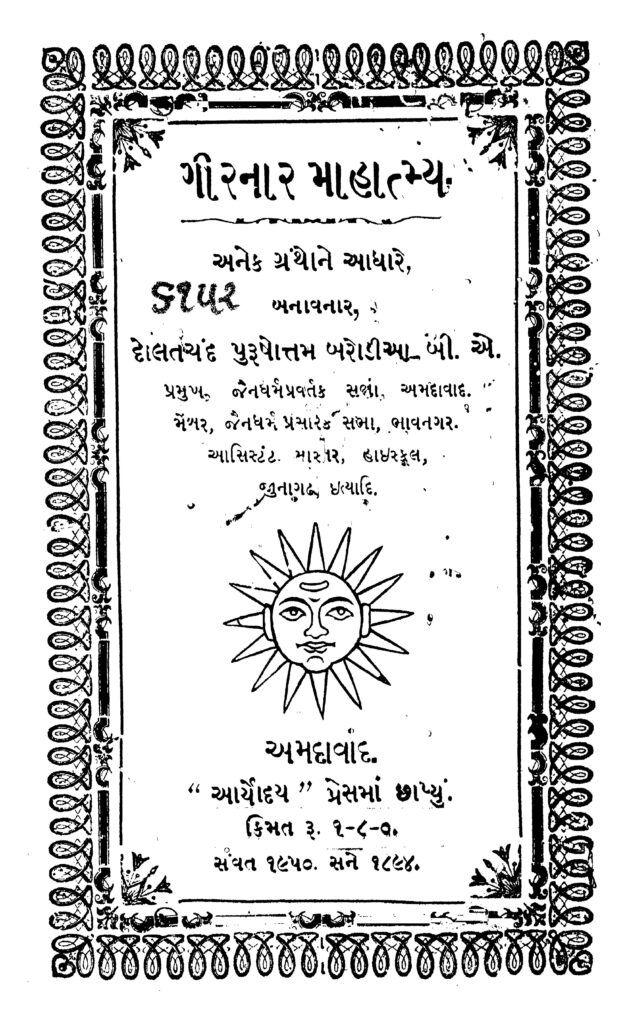 ગીરનાર માહાત્મ્ય.
અનેક ગ્રંથોને આધારે,
ક૧૫૨
બનાવનાર,
દોલતચંદ પુરૂષોત્તમ બરોડીઆ બી. એ.
પ્રમુખ, જૈનધર્મપ્રવર્તક સભા, અમદાવાદ.
મેંબર, જૈનધર્મ પ્રસારક સભા, ભાવનગર.
આસિસ્ટંટ માસ્તર, હાઇસ્કૂલ,
જુનાગઢ, ઇત્યાદિ.
અમદાવાદ.
“ આર્યોદય ” પ્રેસમાં છાપ્યું.
કિમત રૂ. ૧-૮-૦.
સંવત ૧૯૫૦. સને ૧૮૯૪.